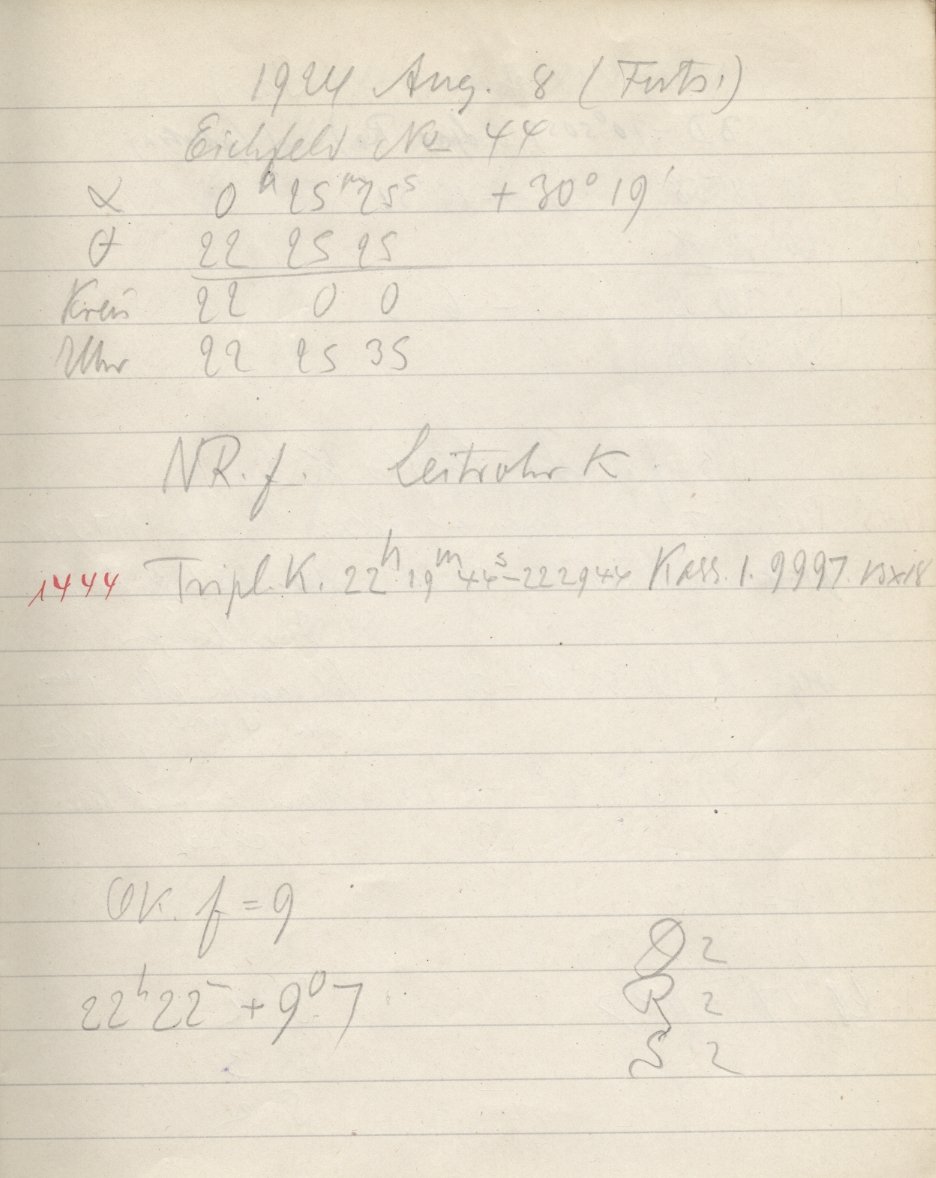 1924 Aug. 8 (Forts.)
Eichfeld No 44
α 0ʰ 25ᵐ 25ˢ +30° 19'
θ 22 25 25
Kreis 22 0 0
Uhr 22 25 35
NR. f. Leitrohr K.
1444 Tripl. K. 22ʰ 19ᵐ 44ˢ - 222944 Kass. 1. 9997. 13x18
OK. f = 9
22ʰ 22 + 9°.7
D 2
R 2
S 2